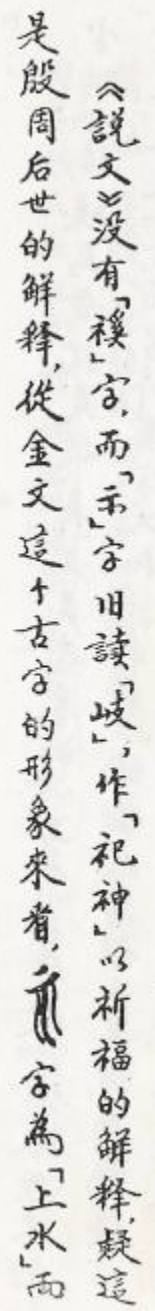 《説文》没有「禊」字,而「示」字旧讀「岐」,作「祀神」以祈福的解释,疑這
是殷周后世的解释,從金文這个古字的形象來看,字為「上水」両